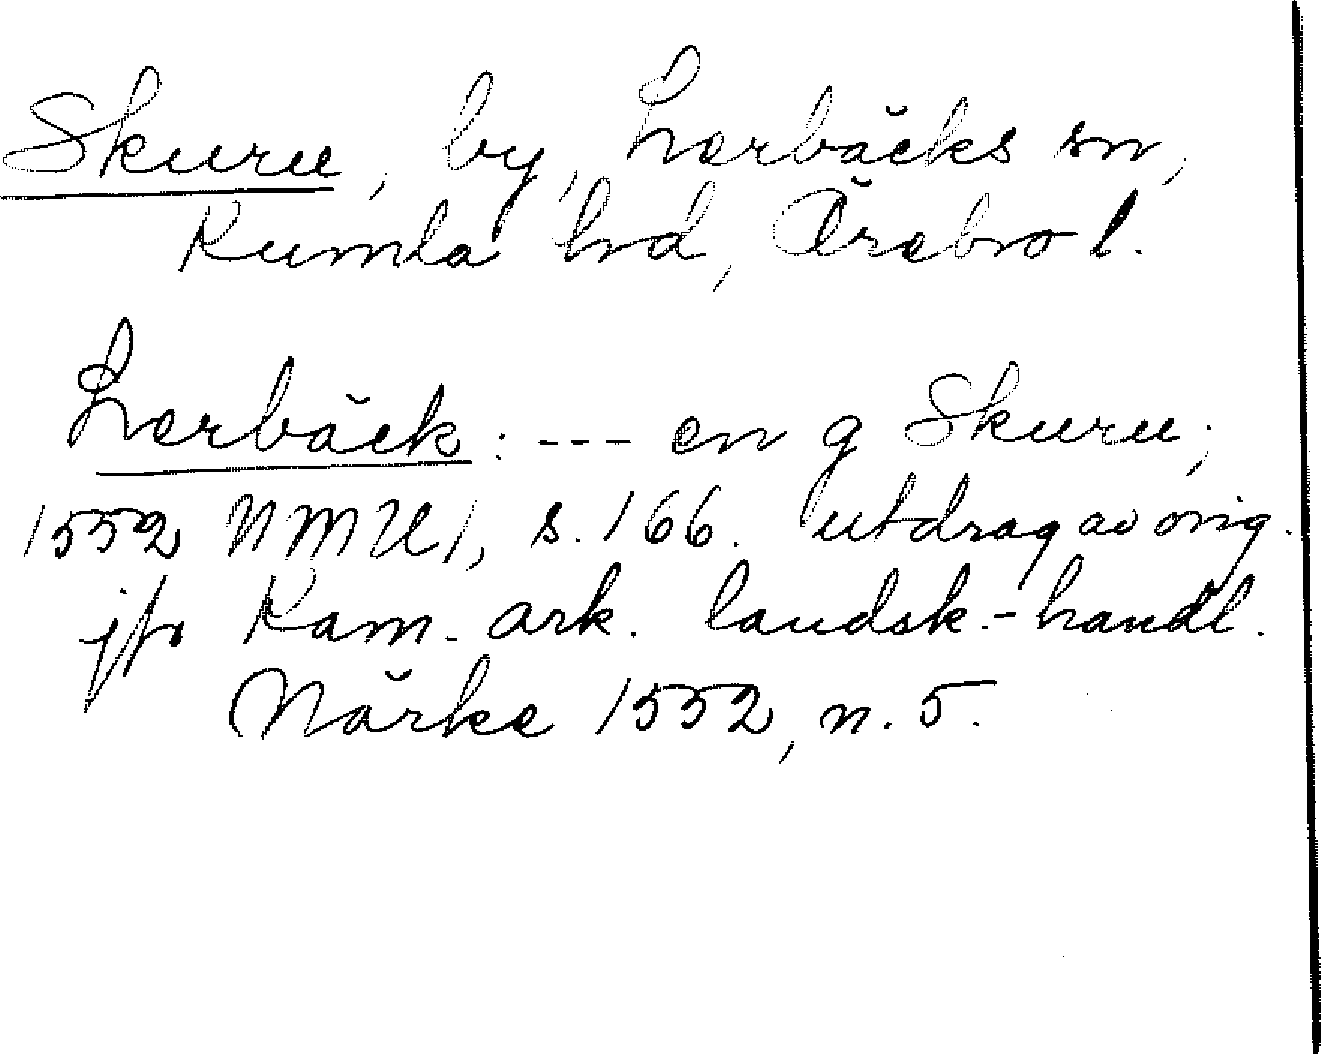 Skuru, by, Lerbäcks sn,
Kumla hd, Örebro l.
Lerbäck: --- en g Skuru;
1552 NMU 1, s. 166. utdrag av orig.
jfr Kam. ark. landsk.-handl.
Närke 1552, n. 5.